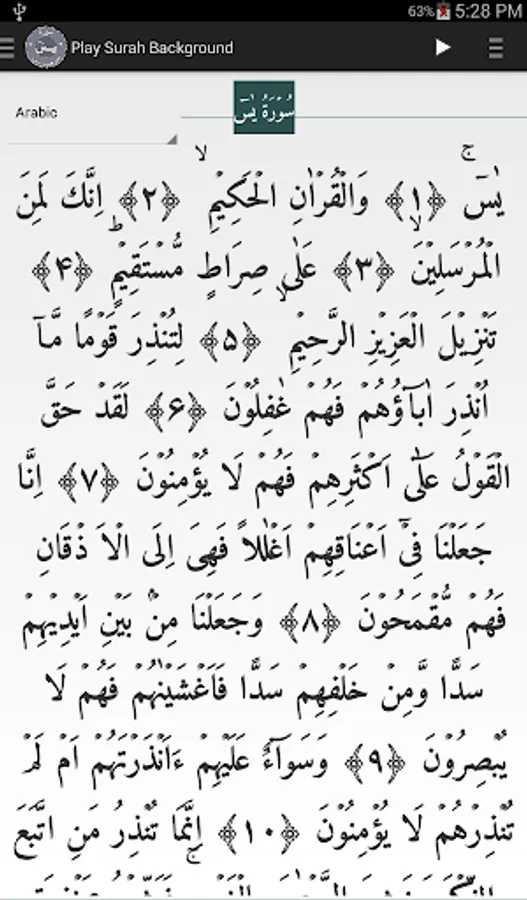 63% 5:28 PM
Play Surah Background
Arabic
سُوْرَةُ يٰسٓ
يٰسٓ ۚ ﴿۱﴾ وَالْقُرْاٰنِ الْحَكِيْمِ ۙ ﴿۲﴾ اِنَّكَ لَمِنَ
الْمُرْسَلِيْنَ ۙ ﴿۳﴾ عَلٰى صِرَاطٍ مُّسْتَقِيْمٍ ؕ ﴿۴﴾
تَنْزِيْلَ الْعَزِيْزِ الرَّحِيْمِ ۙ ﴿۵﴾ لِتُنْذِرَ قَوْمًا مَّاۤ
اُنْذِرَ اٰبَآؤُهُمْ فَهُمْ غٰفِلُوْنَ ﴿۶﴾ لَقَدْ حَقَّ
الْقَوْلُ عَلٰٓى اَكْثَرِهِمْ فَهُمْ لَا يُؤْمِنُوْنَ ﴿۷﴾ اِنَّا
جَعَلْنَا فِىْۤ اَعْنَاقِهِمْ اَغْلٰلاً فَهِىَ اِلَى الْاَ ذْقَانِ
فَهُمْ مُّقْمَحُوْنَ ﴿۸﴾ وَجَعَلْنَا مِنْۢ بَيْنِ اَيْدِيْهِمْ
سَدًّا وَّمِنْ خَلْفِهِمْ سَدًّا فَاَغْشَيْنٰهُمْ فَهُمْ لَا
يُبْصِرُوْنَ ﴿۹﴾ وَسَوَآءٌ عَلَيْهِمْ ءَاَنْذَرْتَهُمْ اَمْ لَمْ
تُنْذِرْهُمْ لَا يُؤْمِنُوْنَ ﴿۱۰﴾ اِنَّمَا تُنْذِرُ مَنِ اتَّبَعَ